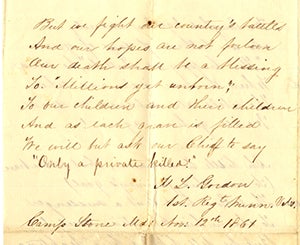 But we fight our country's battles
And our hopes are not forlorn
Our death shall be a blessing
To "Millions yet unborn",
To our children and their children
And as each grave is filled
We will but ask our Chief to say
"Only a private killed."
H. L. Gordon
1st. Reg. Minn. Vols.
Camp Stone Md. Nov. 12th 1861